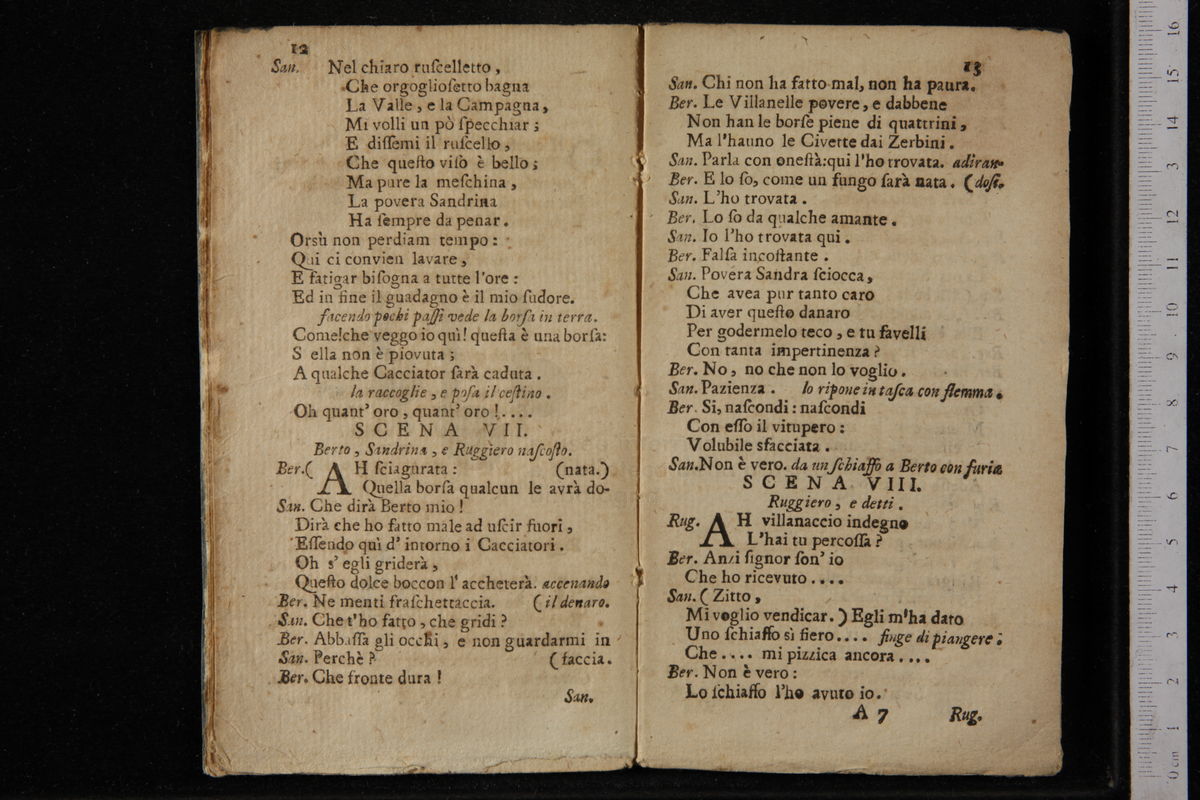 12
San. Nel chiaro ruſcelletto,
Che orgoglioſetto bagna
La Valle, e la Campagna,
Mi volli un pò ſpecchiar;
E diſſemi il ruſcello,
Che queſto viſo è bello;
Ma pure la meſchina,
La povera Sandrina
Ha ſempre da penar.
Orsù non perdiam tempo:
Qui ci convien lavare,
E fatigar biſogna a tutte l'ore:
Ed in fine il guadagno è il mio ſudore.
facendo pochi paſſi vede la borſa in terra.
Come! che veggo io quì! queſta è una borſa:
S ella non è piovuta;
A qualche Cacciator ſarà caduta.
la raccoglie, e poſa il ceſtino.
Oh quant' oro, quant' oro!....
SCENA VII.
Berto, Sandrina, e Ruggiero naſcoſto.
Ber. ( AH ſciagurata: (nata.)
Quella borſa qualcun le avrà do-
San. Che dirà Berto mio!
Dirà che ho fatto male ad uſcir fuori,
Eſſendo quì d' intorno i Cacciatori.
Oh s' egli griderà,
Queſto dolce boccon l' accheterà. accenando
Ber. Ne menti fraſchettaccia. (il denaro.
San. Che t'ho fatto, che gridi?
Ber. Abbaſſa gli occhi, e non guardarmi in
San. Perchè? (faccia.
Ber. Che fronte dura!
San.
13
San. Chi non ha fatto mal, non ha paura.
Ber. Le Villanelle povere, e dabbene
Non han le borſe piene di quattrini,
Ma l'hanno le Civette dai Zerbini.
San. Parla con oneſtà: qui l'ho trovata. adiran-
Ber. E lo ſo, come un fungo ſarà nata. (doſi.
San. L'ho trovata.
Ber. Lo ſo da qualche amante.
San. Io l'ho trovata qui.
Ber. Falſa incoſtante.
San. Povera Sandra ſciocca,
Che avea pur tanto caro
Di aver queſto danaro
Per godermelo teco, e tu favelli
Con tanta impertinenza?
Ber. No, no che non lo voglio.
San. Pazienza. lo ripone in taſca con flemma.
Ber. Si, naſcondi: naſcondi
Con eſſo il vitupero:
Volubile sfacciata.
San. Non è vero. da un ſchiaffo a Berto con furia
SCENA VIII.
Ruggiero, e detti.
Rug. AH villanaccio indegno
L'hai tu percoſſa?
Ber. Anzi ſignor ſon' io
Che ho ricevuto....
San. (Zitto,
Mi voglio vendicar.) Egli m'ha dato
Uno ſchiaffo sì fiero.... finge di piangere;
Che.... mi pizzica ancora....
Ber. Non è vero:
Lo ſchiaffo l'ho avuto io.
A 7 Rug.
16
15
14
13
12
11
10
9
8
7
6
5
4
3
2
1
0 cm